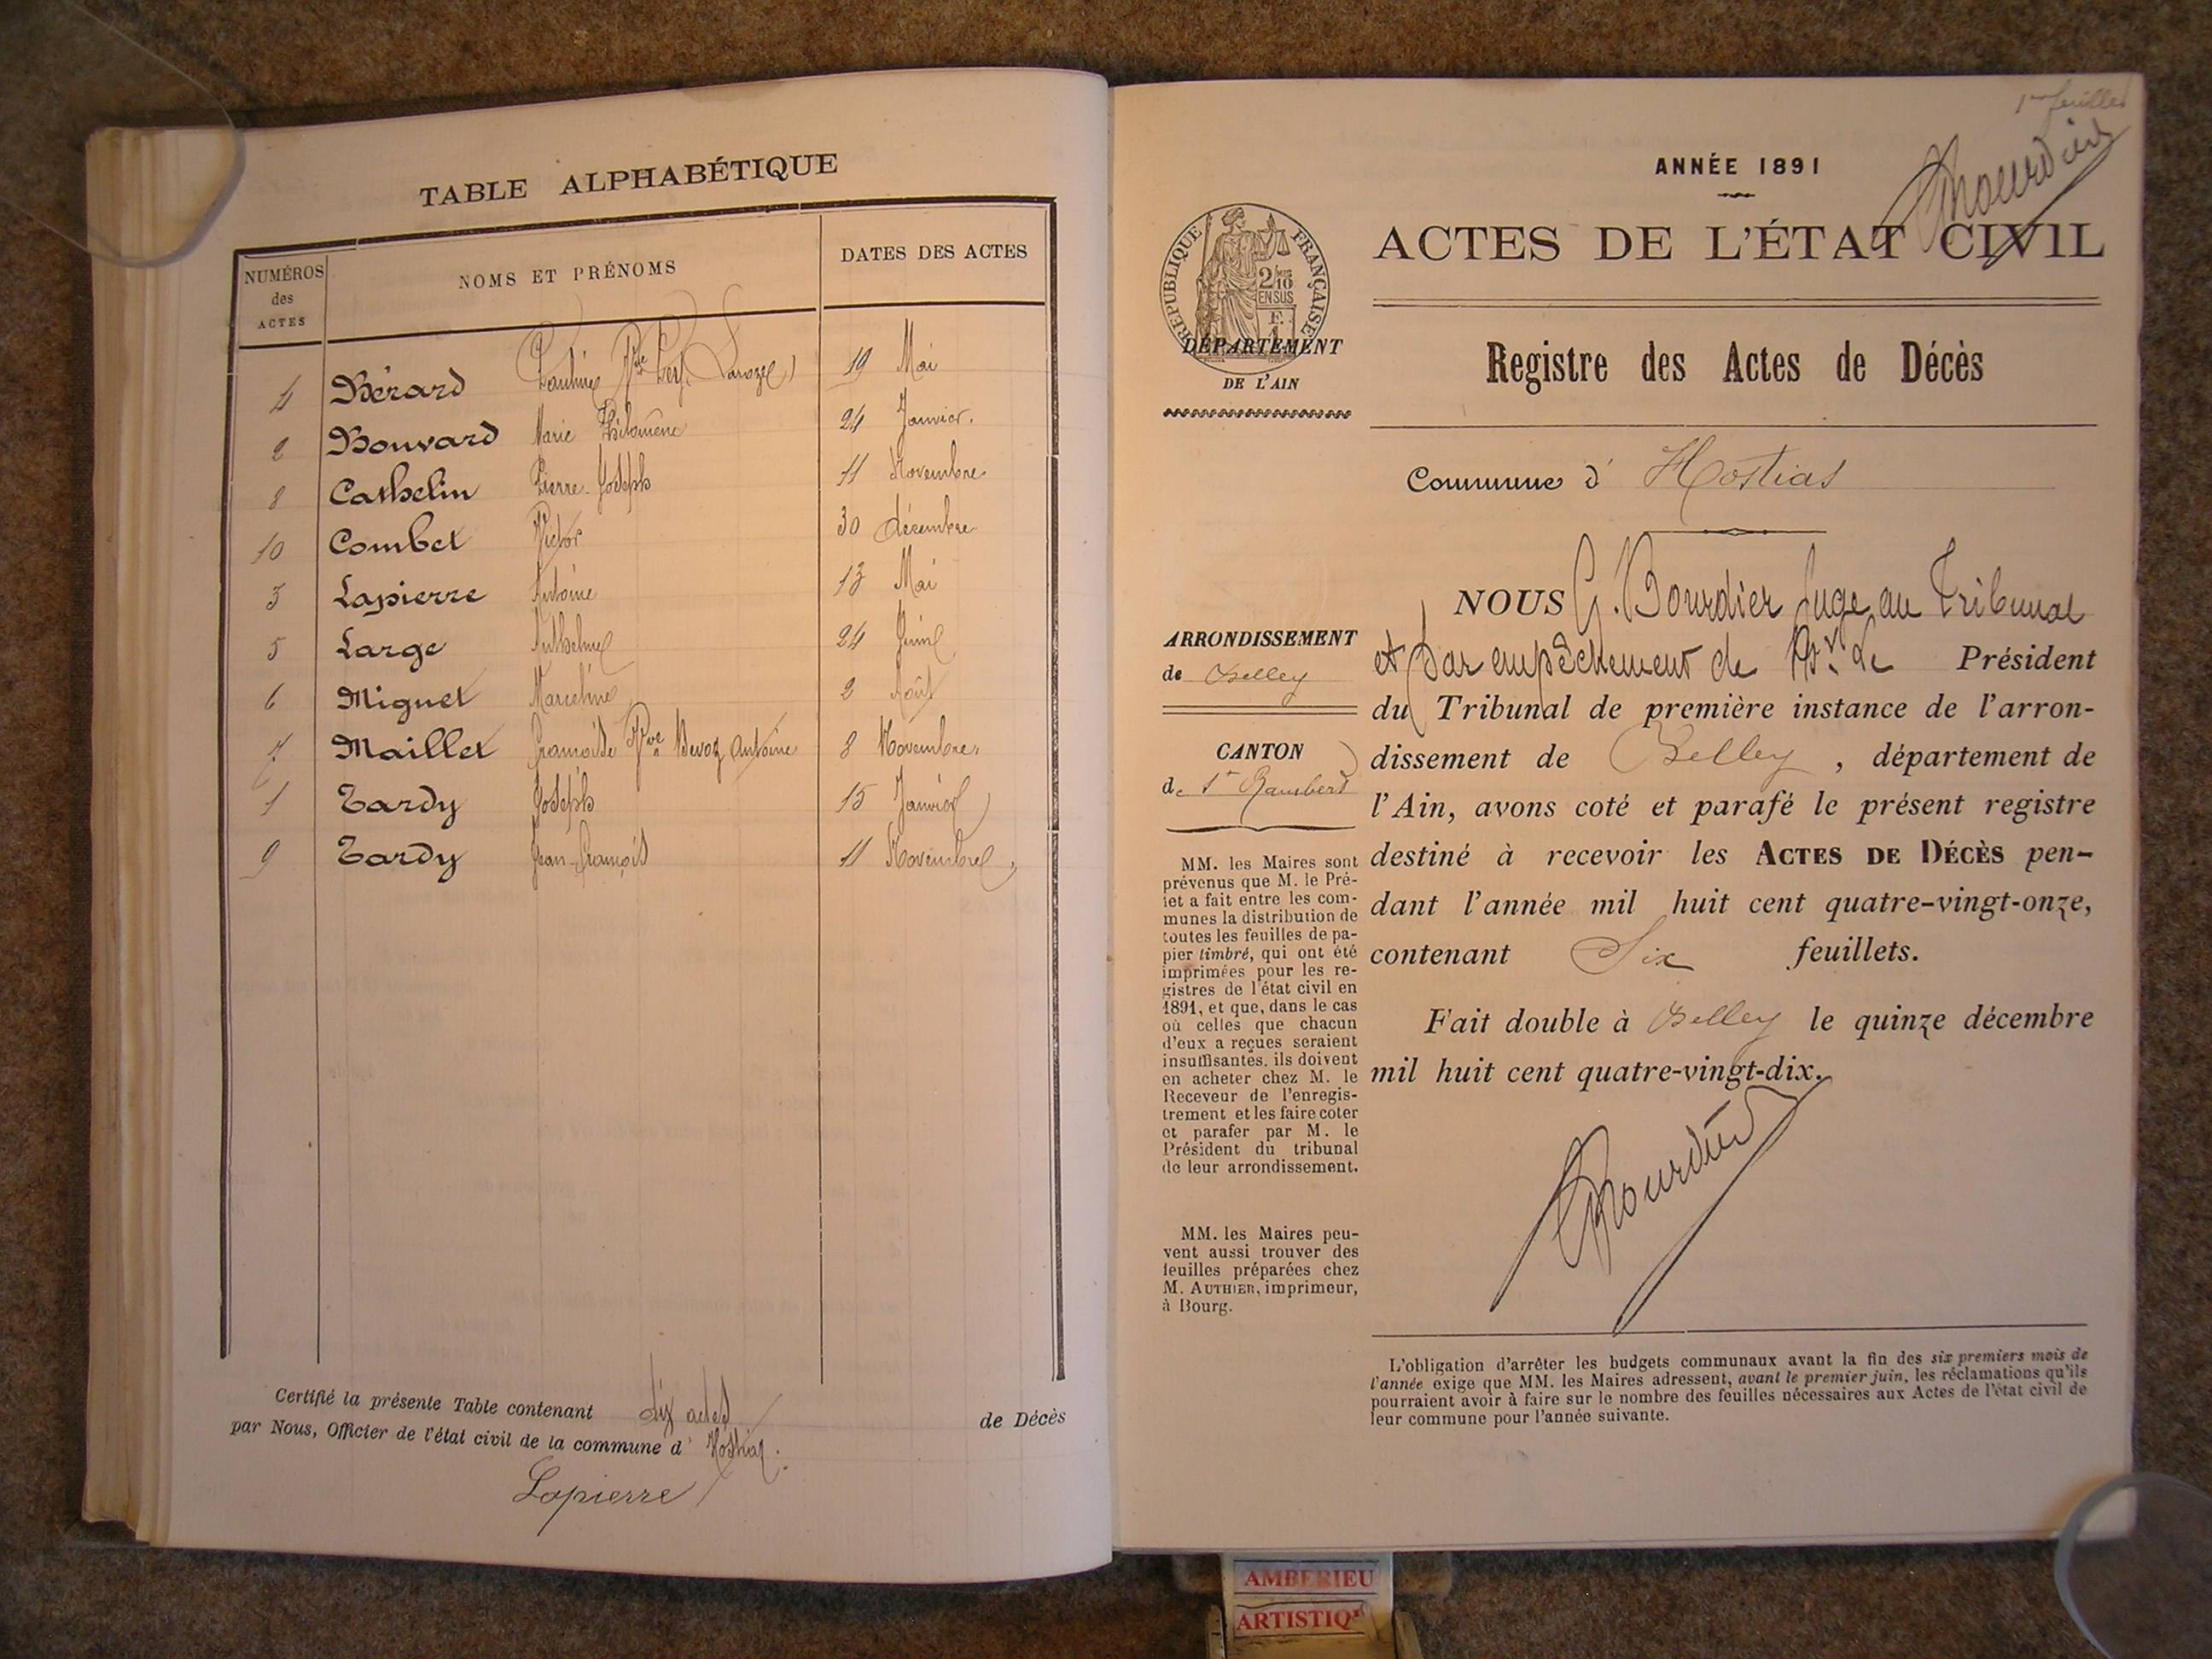 TABLE ALPHABÉTIQUE
NUMÉROS des ACTES
NOMS ET PRÉNOMS
DATES DES ACTES
4 Bérard Pauline 19 Mai
2 Bouvard Marie Philomène 24 Janvier.
8 Cathelin Pierre-Joseph 11 Novembre
10 Combet Victor 30 décembre
3 Lapierre Antoine 13 Mai
5 Large Anthelme 24 Juin
6 Miguet Marceline 2 Août
7 Maillet Françoise Vve Devoz Antoine 8 Novembre.
1 Tardy Joseph 15 Janvier
9 Tardy Jean-François 11 Novembre
Certifié la présente Table contenant dix actes de Décès
par Nous, Officier de l'état civil de la commune d' Hostias.
Lapierre
1er feuillet
Bourdier
ANNÉE 1891
ACTES DE L'ÉTAT CIVIL
RÉPUBLIQUE FRANÇAISE
2/10
EN SUS
DÉPARTEMENT
DE L'AIN
Registre des Actes de Décès
Commune d' Hostias
ARRONDISSEMENT
de Belley
CANTON
de St Rambert
MM. les Maires sont
prévenus que M. le Pré-
fet a fait entre les com-
munes la distribution de
toutes les feuilles de pa-
pier timbré, qui ont été
imprimées pour les re-
gistres de l'état civil en
1891, et que, dans le cas
où celles que chacun
d'eux a reçues seraient
insuffisantes, ils doivent
en acheter chez M. le
Receveur de l'enregis-
trement et les faire coter
et parafer par M. le
Président du tribunal
de leur arrondissement.
MM. les Maires peu-
vent aussi trouver des
feuilles préparées chez
M. AUTHIER, imprimeur,
à Bourg.
NOUS G. Bourdier Juge au Tribunal
et par empêchement de Mr. Le Président
du Tribunal de première instance de l'arron-
dissement de Belley, département de
l'Ain, avons coté et parafé le présent registre
destiné à recevoir les ACTES DE DÉCÈS pen-
dant l'année mil huit cent quatre-vingt-onze,
contenant Six feuillets.
Fait double à Belley le quinze décembre
mil huit cent quatre-vingt-dix.
Bourdier
L'obligation d'arrêter les budgets communaux avant la fin des six premiers mois de
l'année exige que MM. les Maires adressent, avant le premier juin, les réclamations qu'ils
pourraient avoir à faire sur le nombre des feuilles nécessaires aux Actes de l'état civil de
leur commune pour l'année suivante.
AMBERIEU
ARTISTIQ